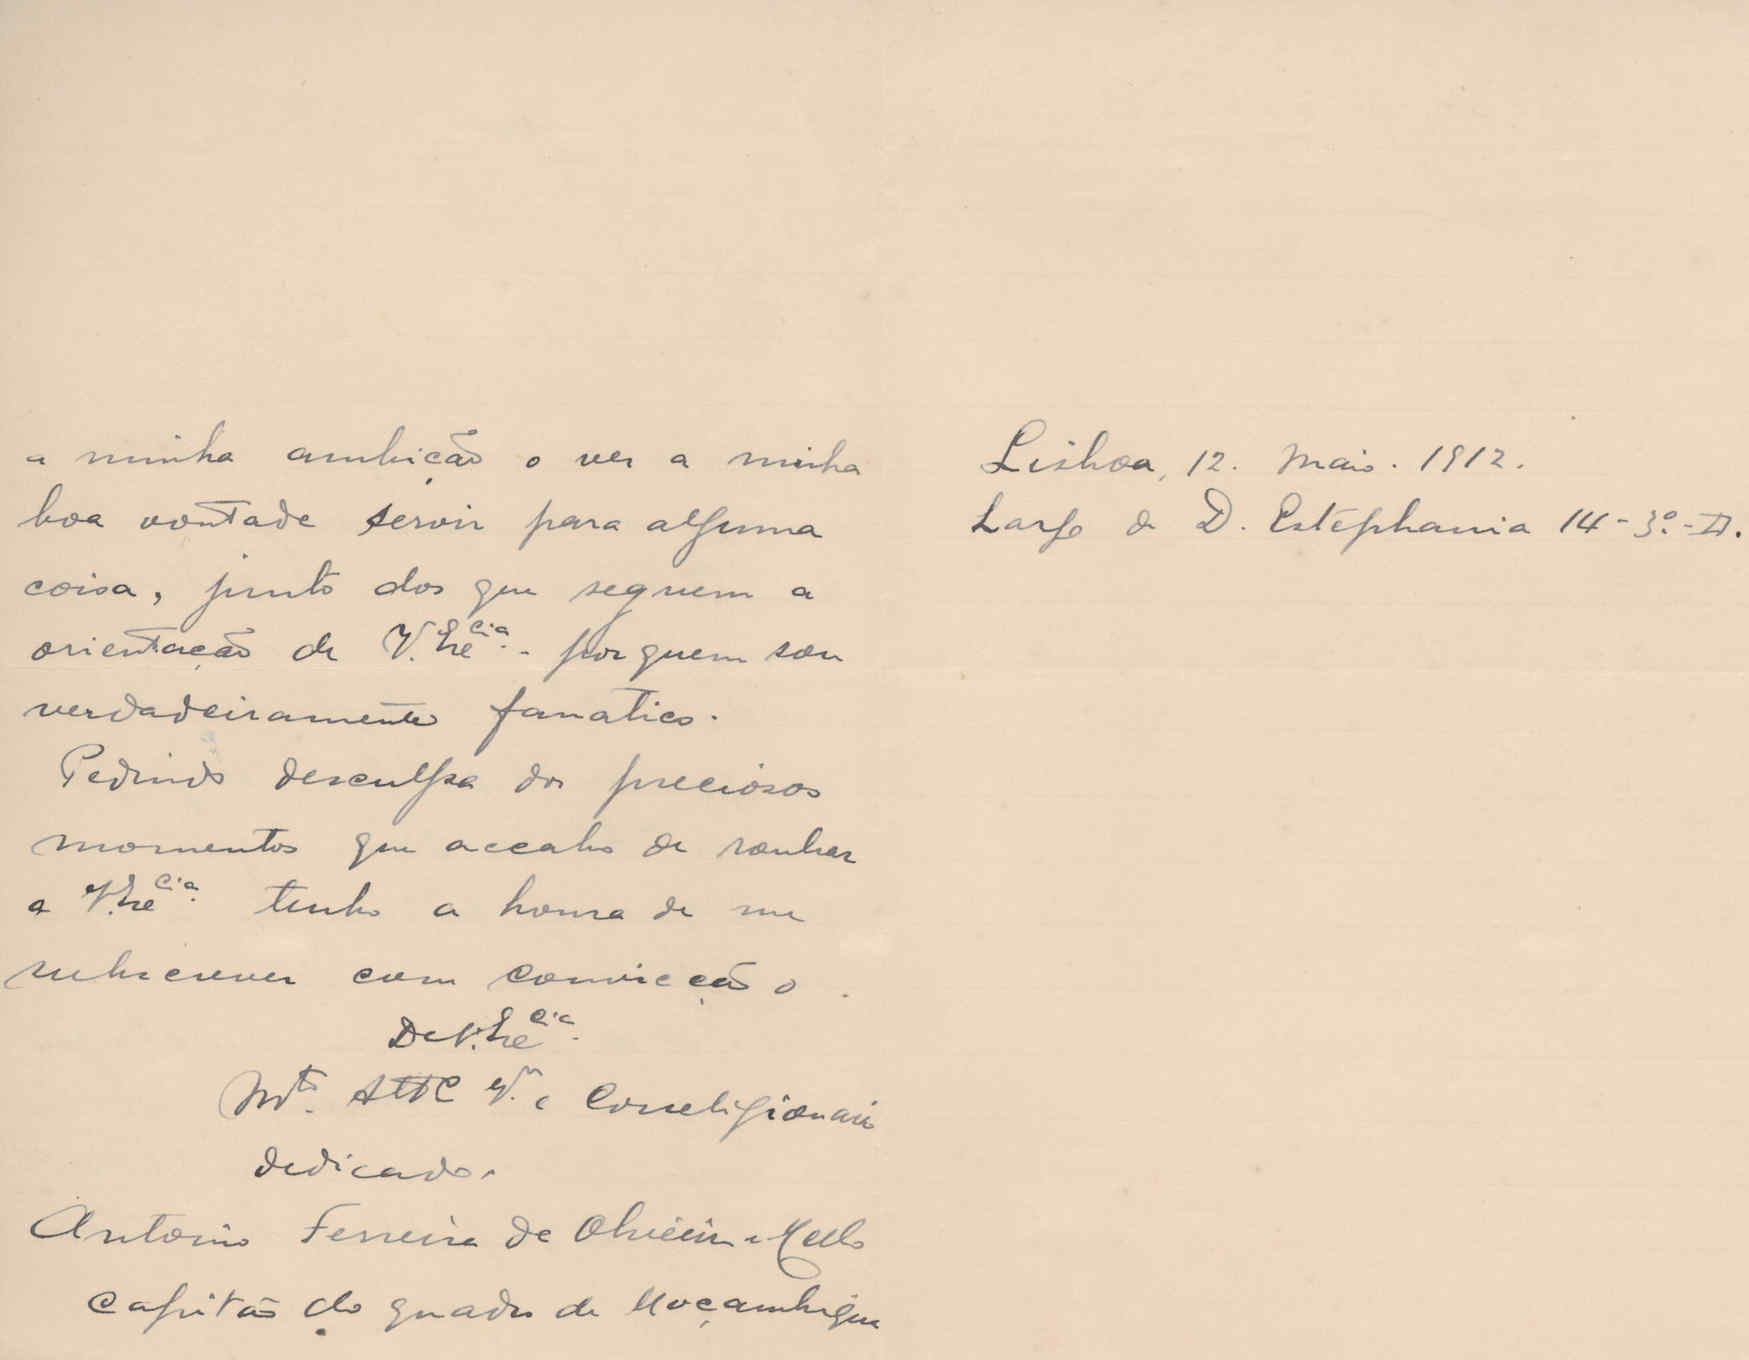 a minha ambição o ver a minha
boa vontade servir para alguma
coisa, junto dos que seguem a
orientação de V. Exª cia. - por quem sou
verdadeiramente fanatico.
Pedindo desculpa dos preciosos
momentos que accabo de roubar
a V. Ex.cia tenho a honra de me
subscrever com convicção o.
De V. Ex.cia
Mto. Attº Vor e Correligionario
dedicado.
Antonio Ferreira de Oliveira e Mello
capitão do quadro de Moçambique
Lisboa, 12. Maio. 1912.
Largo de D. Estephania 14-3º.-D.